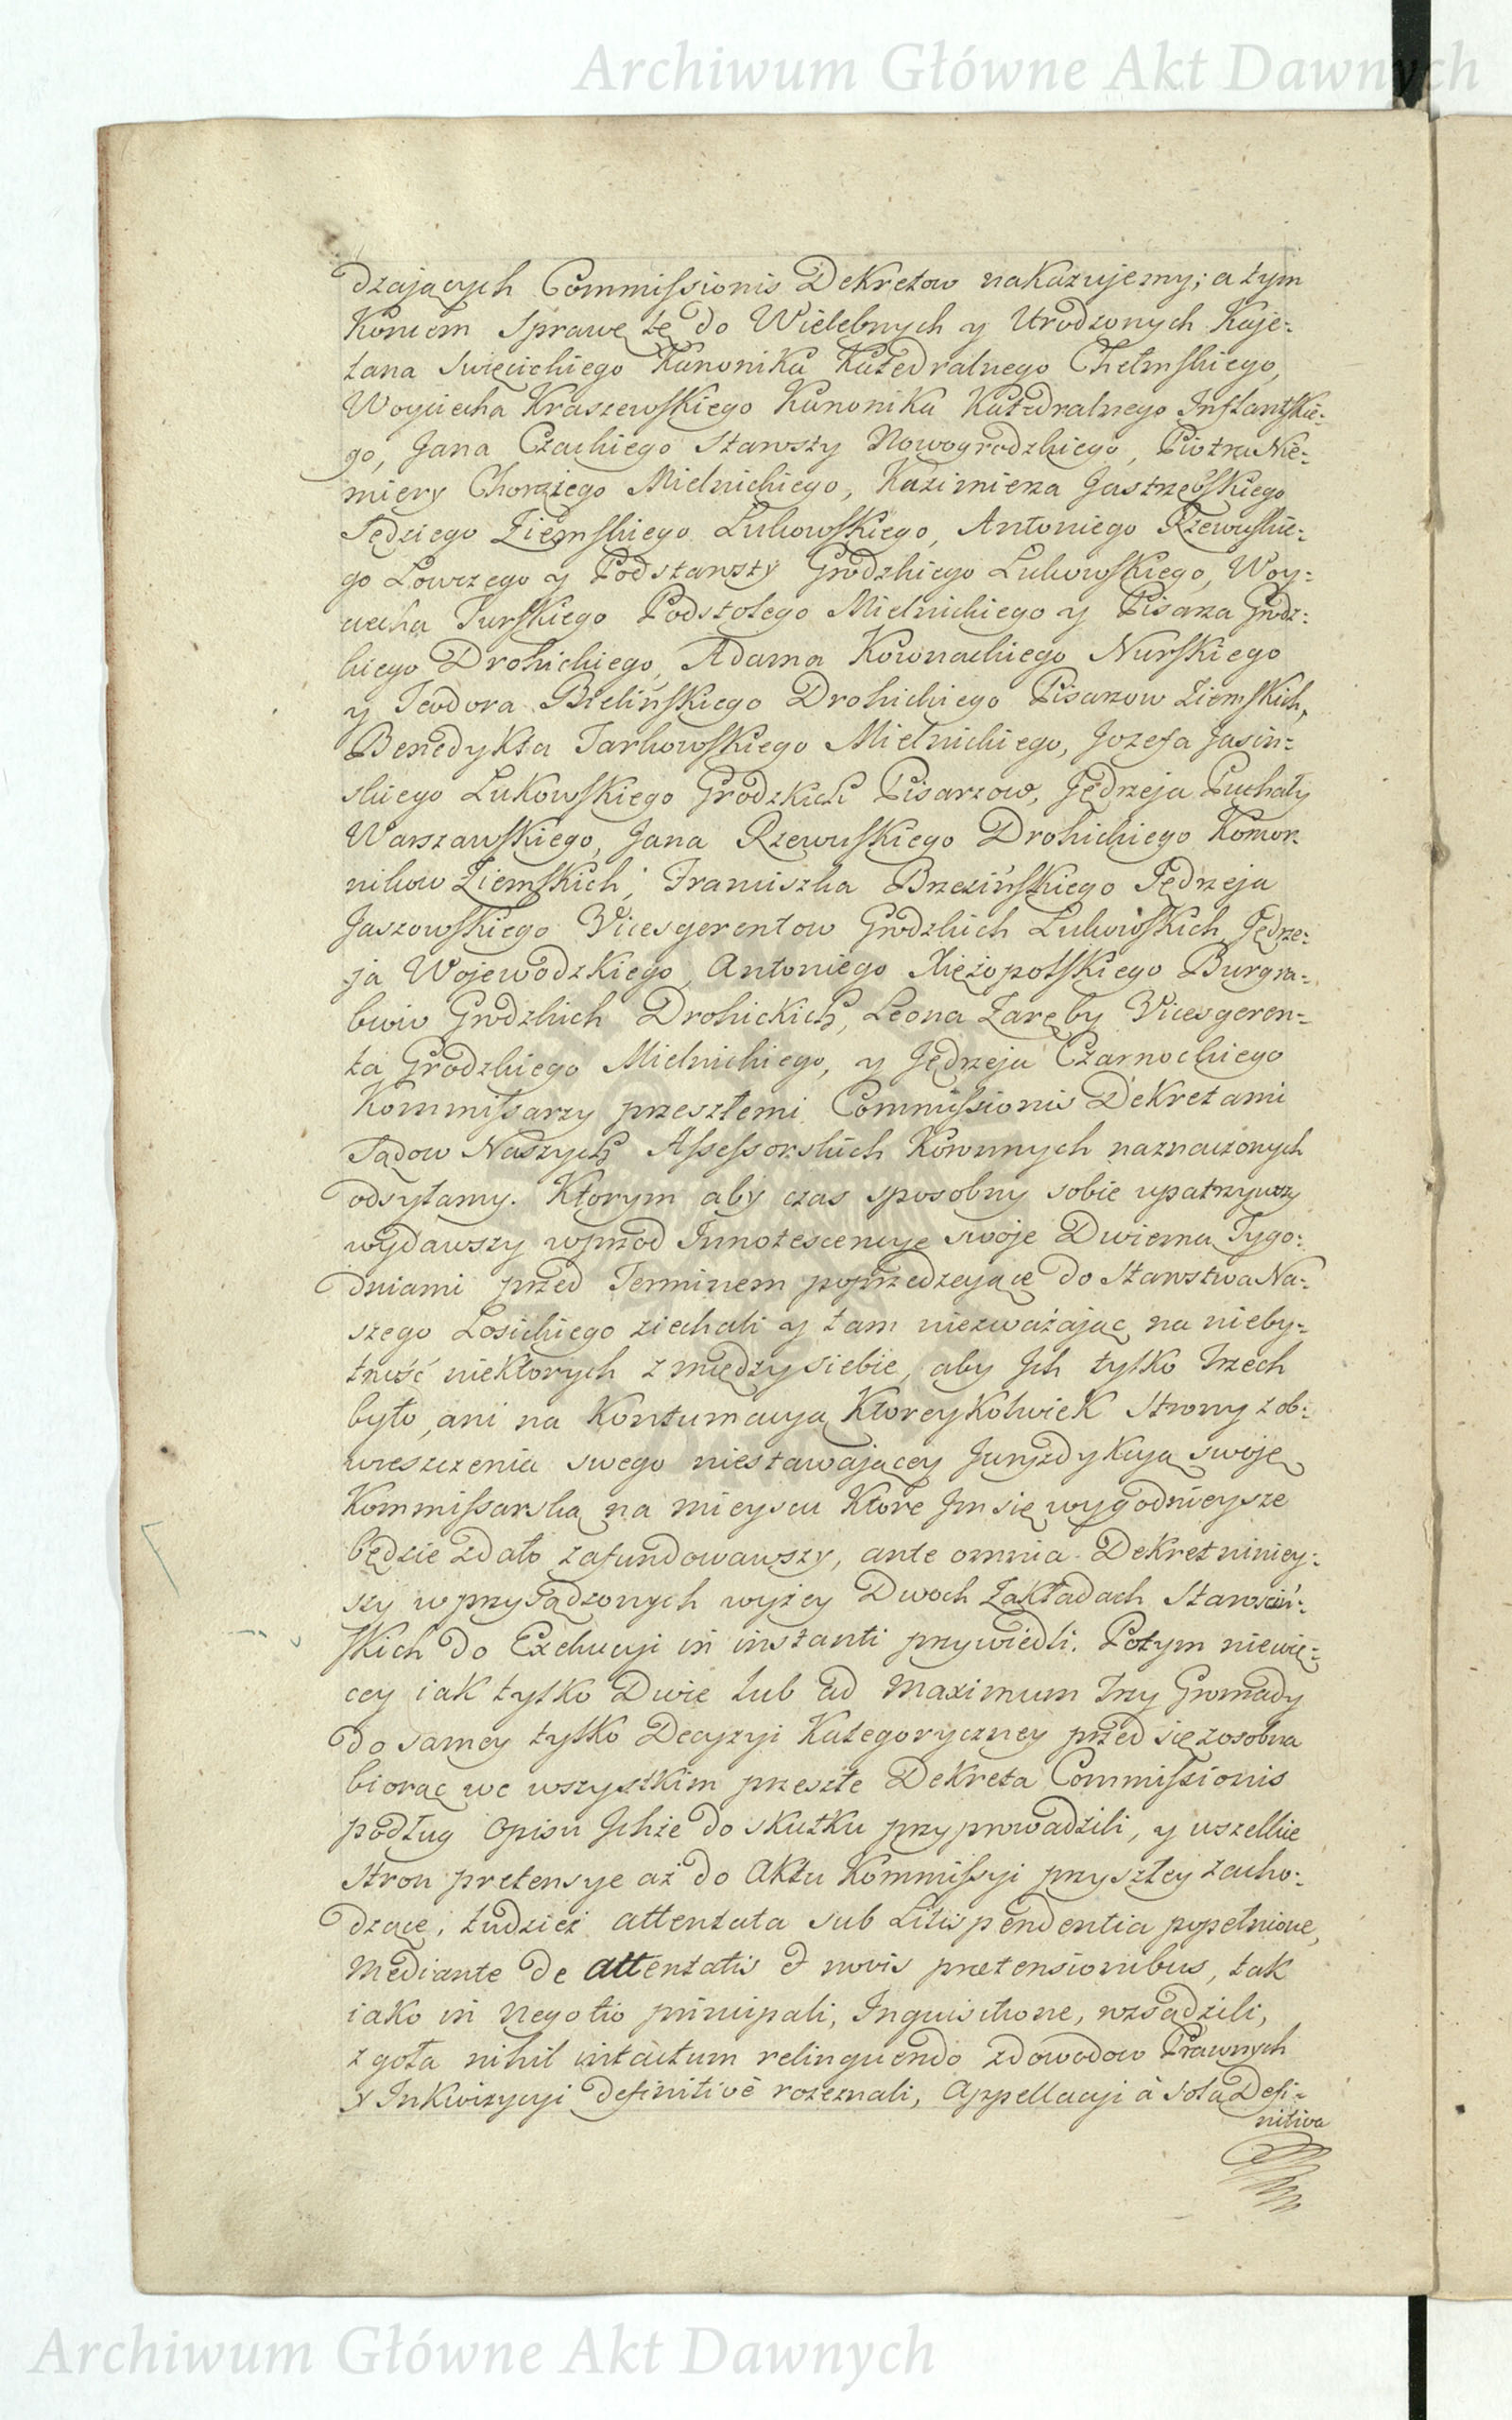 Archiwum Główne Akt Dawnych
dzających Commissionis Dekretow nakazujemy; a tym
Koncem Sprawę tę do Wielebnych y Urodzonych Kaje-
tana Swięcickiego Kanonika Katedralnego Chełmskiego,
Woyciecha Kraszewskiego Kanonika Katedralnego Inflantskie-
go, Jana Czackiego Starosty Nowogrodzkiego, Piotra Nie-
miery Chorążego Mielnickiego, Kazimierza Jastrzębskiego
Sędziego Ziemskiego Łukowskiego, Antoniego Rzewuskie-
go Łowczego y Podstarosty Grodzkiego Łukowskiego, Woy-
ciecha Turskiego Podstolego Mielnickiego y Pisarza Grodz-
kiego Drohickiego, Adama Kownackiego Nurskiego
y Teodora Bielińskiego Drohickiego Pisarzow Ziemskich,
Benedykta Tarkowskiego Mielnickiego, Jozefa Jasiń-
skiego Łukowskiego Grodzkich Pisarzow, Jędrzeja Puchały
Warszawskiego, Jana Rzewuskiego Drohickiego Komor-
nikow Ziemskich, Franciszka Brzezińskiego Jędrzeja
Jaszowskiego Vicesgerentow Grodzkich Łukowskich, Jędrze-
ja Wojewodzkiego, Antoniego Xiężopolskiego Burgra-
biow Grodzkich Drohickich, Leona Zaręby Vicesgeren-
ta Grodzkiego Mielnickiego, y Jędrzeja Czarnockiego
Kommissarzy przeszłemi Commissionis Dekretami
Sądow Naszych Assessorskich Koronnych naznaczonych
odsyłamy. Ktorym aby czas sposobny sobie upatrzywszy
wydawszy wprzod Innotescencye swoje Dwiema Tygo-
dniami przed Terminem poprzedzające do Starostwa Na-
szego Łosickiego ziechali y tam niezważając na nieby-
tność niektorych z między siebie, aby Ich tylko trzech
było, ani na Kontumacyą Ktoreykolwiek Strony z ob-
wieszczenia swego niestawającey Juryzdykcyą swoję
Kommissarską na mieyscu Ktore Im się wygodnieysze
będzie zdało zafundowawszy, ante omnia Dekret niniey-
szy w przysądzonych wyżey Dwoch Zakładach Starościń-
skich do Exekucyi in instanti przywiedli. Potym niewię-
cey iak tylko Dwie lub ad maximum trzy Gromady
do samey tylko Decyzyi Kategoryczney przed się zosobna
biorąc we wszystkim przeszłe Dekreta Commissionis
podług opisu Ichże do skutku przyprowadzili, y wszelkie
stron pretensye aż do Aktu Kommissyi przyszłey zacho-
dzące, tudzież attentata sub Litispendentia popełnione,
Mediante de attentatis et novis praetensionibus, tak
iako in negotio principali, Inquisitione, rozsądzili,
zgoła nihil intactum relinquendo z dowodow Prawnych
y Inkwizycyi definitivè rozeznali, Appellacyi à sola Defi-
nitiva
Archiwum Główne Akt Dawnych